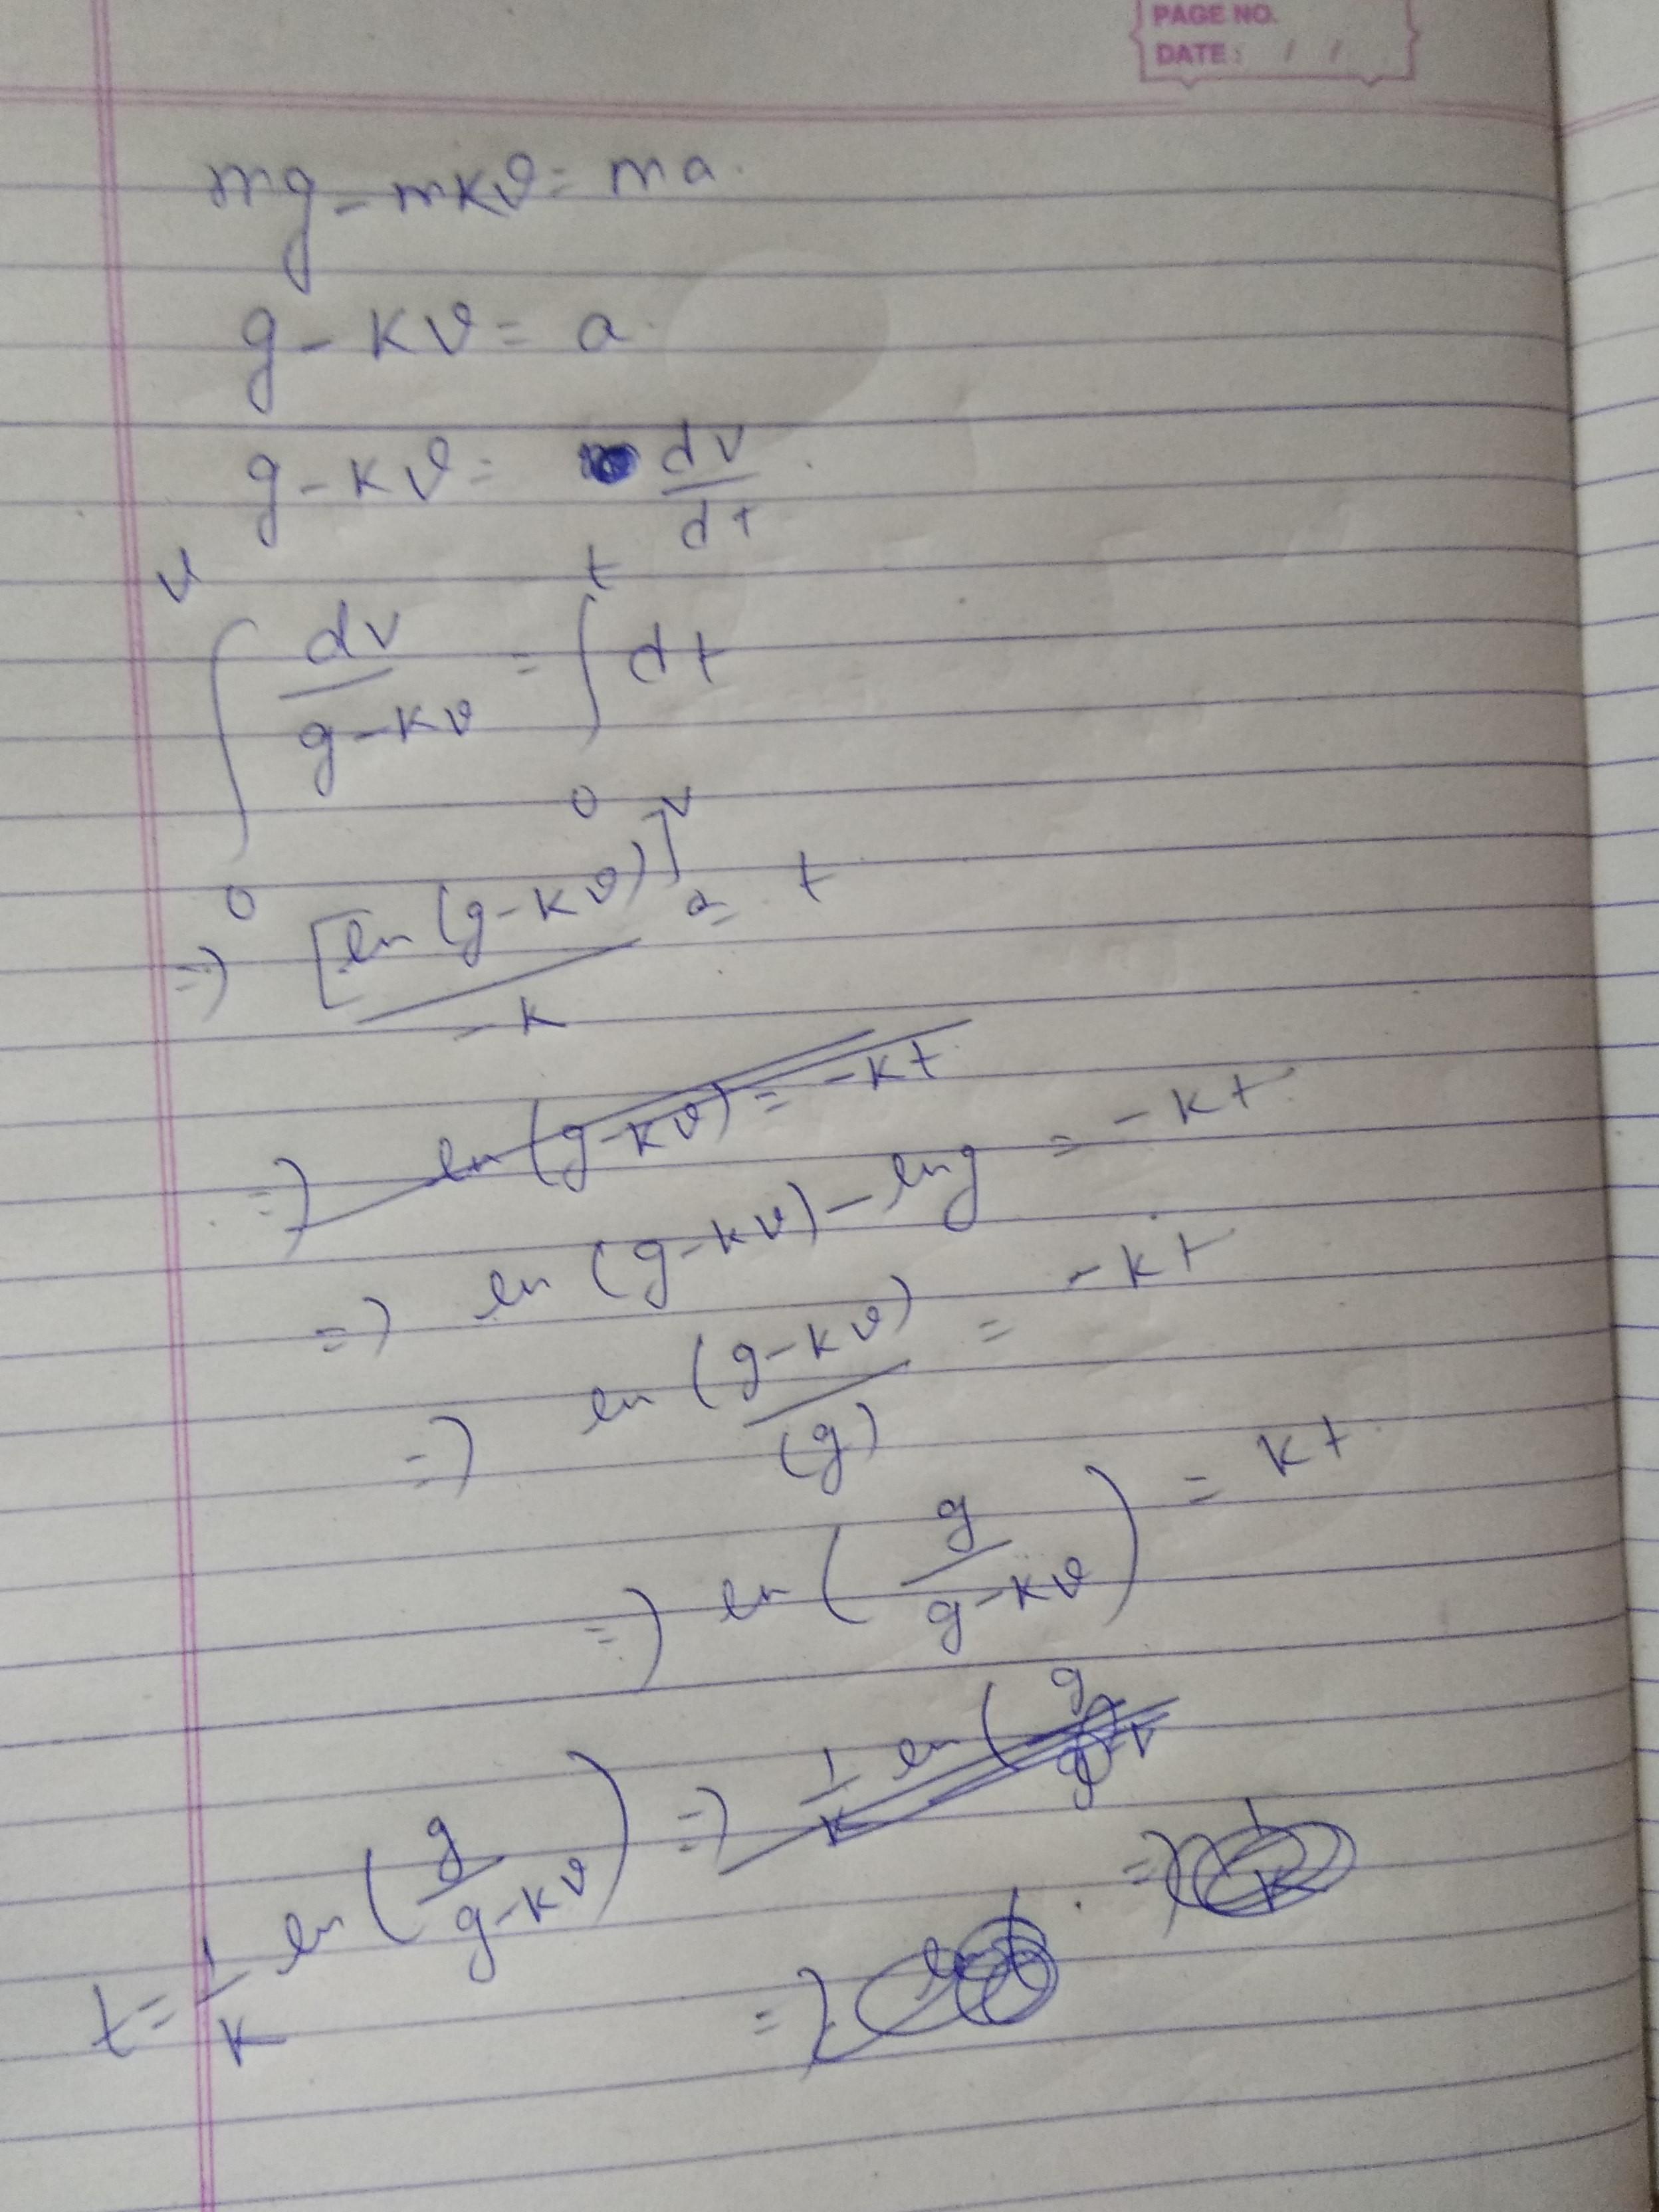 PAGE NO.
DATE: / /
mg - mkv = ma.
g - kv = a.
g - kv = dv/dt.
∫₀ᵛ dv/(g-kv) = ∫₀ᵗ dt
⇒ [ln(g-kv)]₀ᵛ/-k = t
⇒ ln(g-kv) = -kt
⇒ ln(g-kv) - ln g = -kt
⇒ ln (g-kv)/(g) = -kt
⇒ ln(g/(g-kv)) = kt
⇒ 1/k ln(g/
t = 1/k ln(g/(g-kv))